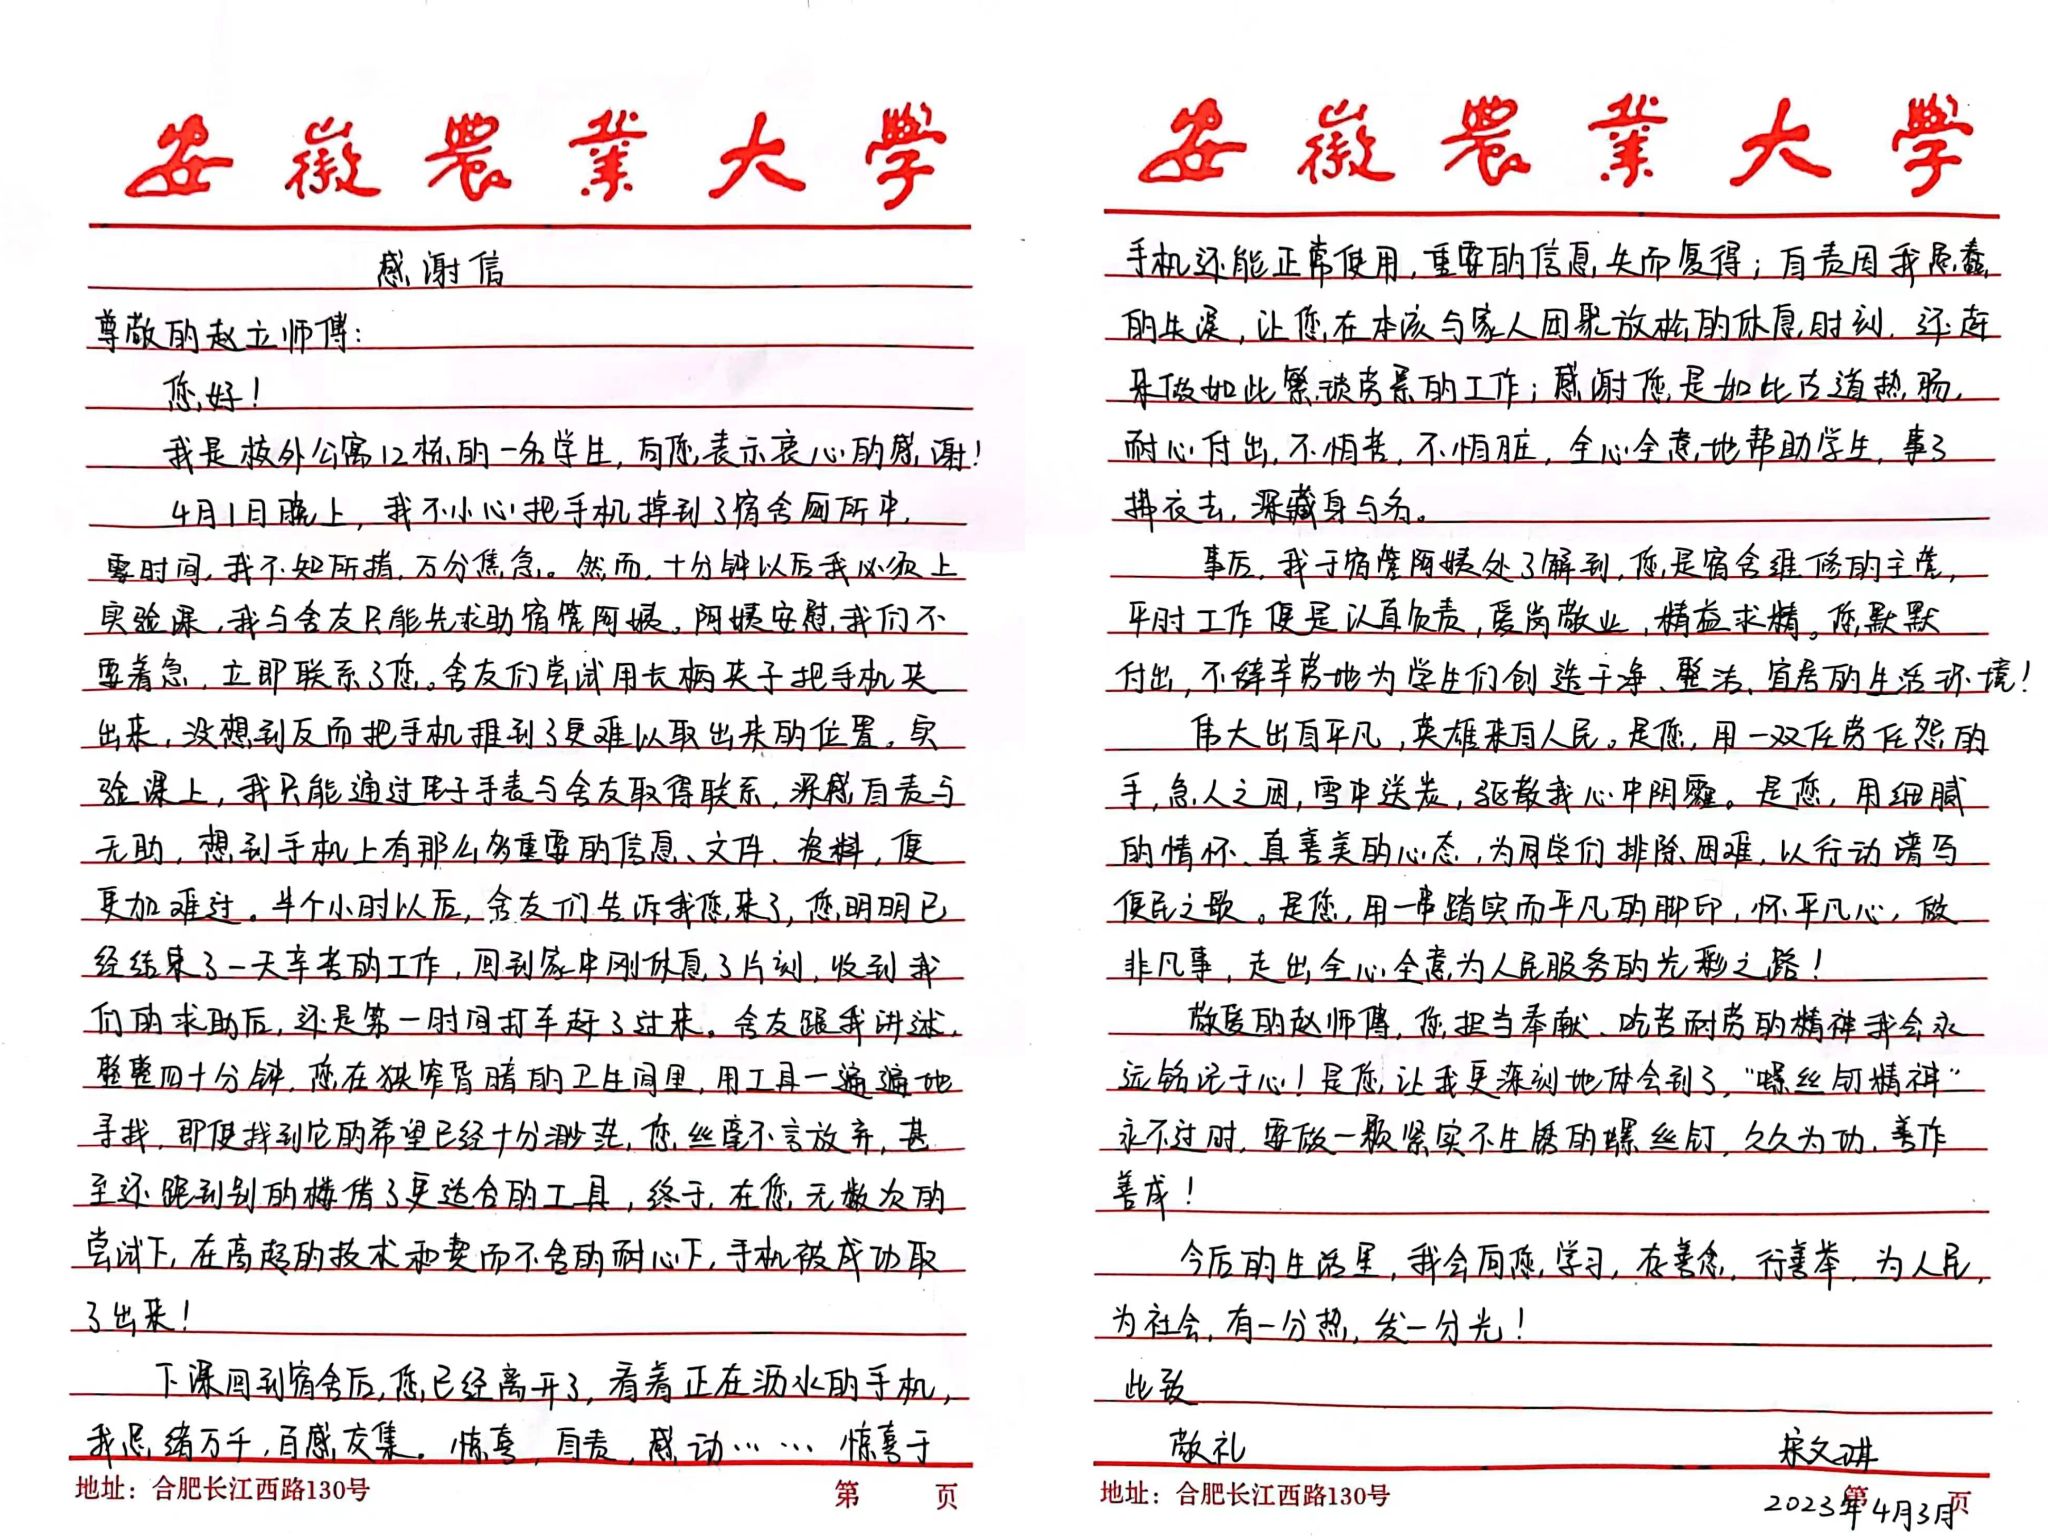 安徽农业大学
感谢信
尊敬的赵立师傅：
您好！
我是校外公寓12栋的一名学生，向您表示衷心的感谢！
4月1日晚上，我不小心把手机掉到了宿舍厕所中，
霎时间，我不知所措，万分焦急。然而，十分钟以后我必须上
实验课，我与舍友只能先求助宿管阿姨。阿姨安慰我们不
要着急，立即联系了您。舍友们尝试用长柄夹子把手机夹
出来，没想到反而把手机推到了更难以取出来的位置。实
验课上，我只能通过电子手表与舍友取得联系，深感自责与
无助，想到手机上有那么多重要的信息、文件、资料，便
更加难过。半个小时以后，舍友们告诉我您来了，您明明已
经结束了一天辛苦的工作，回到家中刚休息了片刻，收到我
们的求助后，还是第一时间打车赶了过来。舍友跟我讲述，
整整四十分钟，您在狭窄昏暗的卫生间里，用工具一遍遍地
寻找，即使找到它的希望已经十分渺茫，您丝毫不言放弃，甚
至还跑到别的楼借了更适合的工具，终于，在您无数次的
尝试下，在高超的技术和契而不舍的耐心下，手机被成功取
了出来！
下课回到宿舍后，您已经离开了，看着正在沥水的手机，
我思绪万千，百感交集。惊喜，自责，感动……惊喜于
地址：合肥长江西路130号 第 页
安徽农业大学
手机还能正常使用，重要的信息失而复得；自责因我愚蠢
的失误，让您在本该与家人团聚放松的休息时刻，还赶
来做如此繁琐劳累的工作；感谢您是如此古道热肠，
耐心付出，不怕苦，不怕脏，全心全意地帮助学生，事了
拂衣去，深藏身与名。
事后，我于宿管阿姨处了解到，您是宿舍维修的主管，
平时工作便是认真负责，爱岗敬业，精益求精。您默默
付出，不辞辛劳地为学生们创造干净、整洁、宜居的生活环境！
伟大出自平凡，英雄来自人民。是您，用一双任劳任怨的
手，急人之困，雪中送炭，驱散我心中阴霾。是您，用细腻
的情怀、真善美的心态，为同学们排除困难，以行动谱写
便民之歌。是您，用一串踏实而平凡的脚印，怀平凡心，做
非凡事，走出全心全意为人民服务的光彩之路！
敬爱的赵师傅，您担当奉献、吃苦耐劳的精神我会永
远铭记于心！是您让我更深刻地体会到了，“螺丝钉精神”
永不过时，要做一颗紧实不生锈的螺丝钉，久久为功，善作
善成！
今后的生活里，我会向您学习，存善念，行善举，为人民，
为社会，有一分热，发一分光！
此致
敬礼 宋文琪
地址：合肥长江西路130号 第 页
2023年4月3日